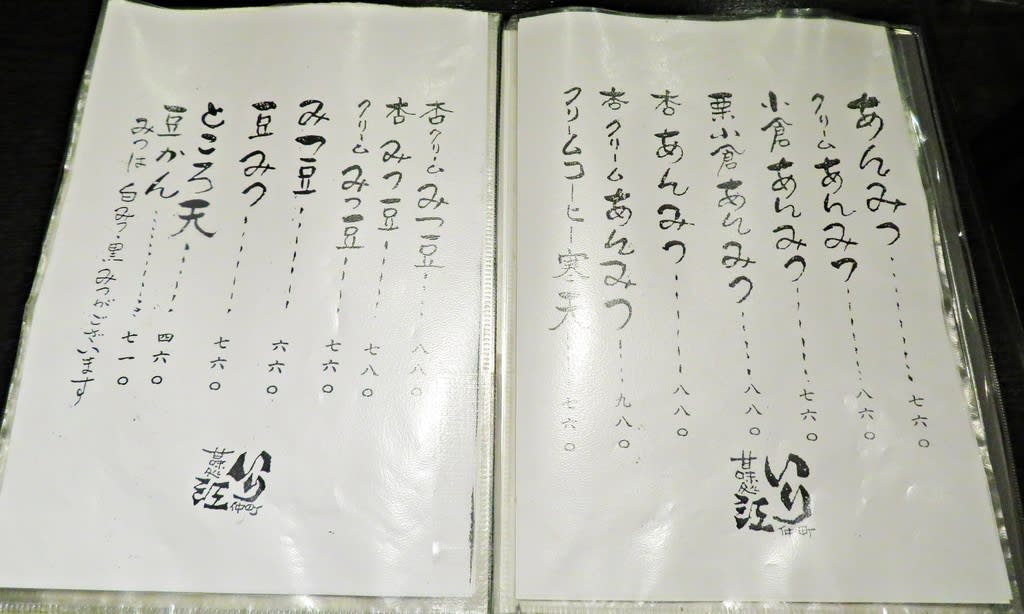 あんみつ………七六〇
クリームあんみつ………八六〇
小倉あんみつ………七六〇
栗小倉あんみつ………八八〇
杏あんみつ………八八〇
杏クリームあんみつ………九八〇
クリームコーヒー寒天………七六〇
甘味処
いり江
仲町
杏クリームみつ豆………八八〇
杏みつ豆………七八〇
クリームみつ豆………七六〇
みつ豆………六六〇
豆みつ………七六〇
ところ天………四六〇
豆かん………七一〇
みつは白みつ・黒みつがございます
甘味処
いり江
仲町